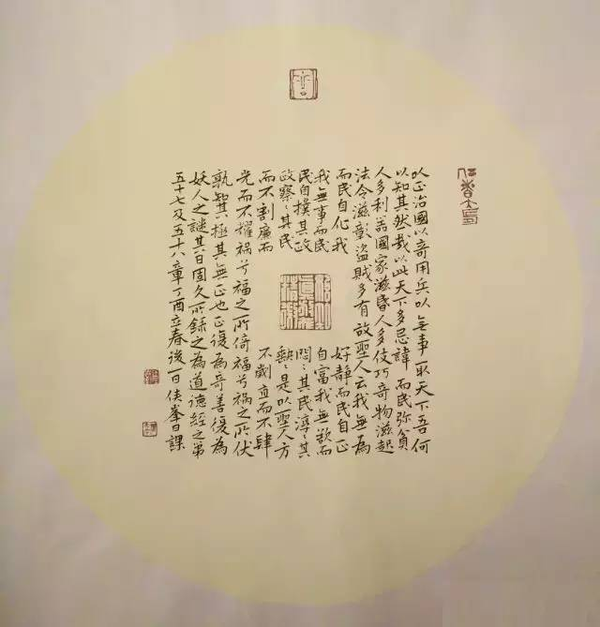 以正治國以奇用兵以無事取天下吾何
以知其然哉以此天下多忌諱而民弥貧
人多利器國家滋昏人多伎巧奇物滋起
法令滋彰盜賊多有故聖人云我無為
而民自化我好静而民自正
我無事而民自富我無欲而
民自樸其政悶〻其民淳〻其
政察〻其民〻是以聖人方
而不割廉而不劌直而不肆
光而不耀禍兮福之所倚福兮禍之所伏
孰知其極其無正也正復為奇善復為
妖人之謎其日固久所録之為道德經之第
五十七及五十八章丁酉立春後一日峯日課